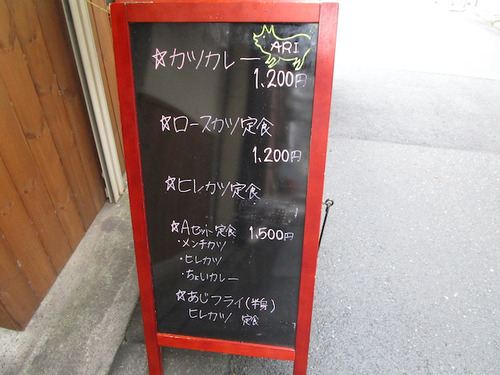 ARI
☆カツカレー
1,200円
☆ロースカツ定食
1,200円
☆ヒレカツ定食
☆Aセット定食 1,500円
・メンチカツ
・ヒレカツ
・ちょいカレー
☆あじフライ(半身)
ヒレカツ 定食